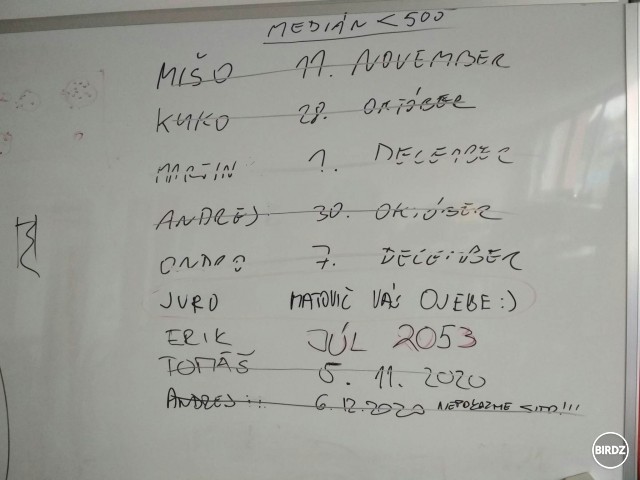 MEDIÁN < 500
MIŠO 11. NOVEMBER
KUKO 28. OKTÓBER
MATIN 1. DECEMBER
ANDREJ 30. OKTÓBER
ONDRO 7. DECEMBER
JURO MATOVIČ VÁS OJEBE:)
ERIK JÚL 2053
TOMÁŠ 5. 11. 2020
ANDREJ!!! 6.12.2020 NEPOKAZME SITO!!!
BIRDZ